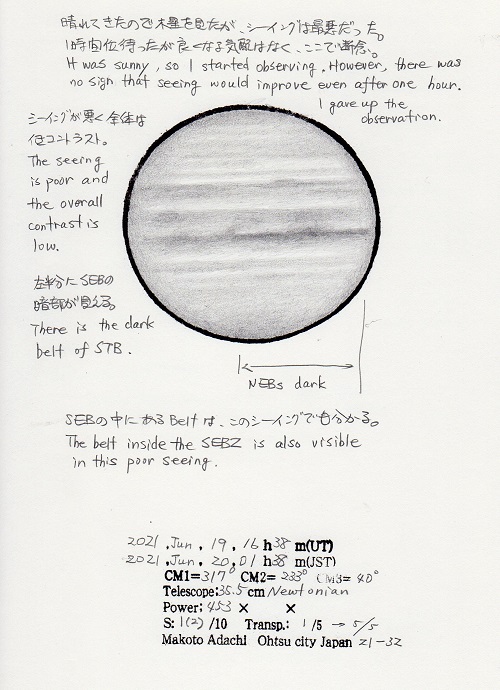 晴れてきたので木星を見たが、シーイングは最悪だった。
1時間位待ったが良くなる気配はなく、ここで断念。
It was sunny, so I started observing. However, there was
no sign that seeing would improve even after one hour.
I gave up the
observation.
シーイングが悪く全体は
低コントラスト。
The seeing
is poor and
the overall
contrast is
low.
左半分にSEBの
暗部が見える。
There is the dark
belt of STB.
NEBs dark
SEBの中にあるBeltは、このシーイングでも分かる。
The belt inside the SEBZ is also visible
in this poor seeing.
2021, Jun, 19, 16 h 38 m(UT)
2021, Jun, 20, 01 h 38 m(JST)
CM1=317° CM2=233° CM3=40°
Telescope: 35.5 cm Newtonian
Power: 453 × ×
S: 1(2) /10 Transp.: 1 /5 → 5/5
Makoto Adachi Ohtsu city Japan 21-32